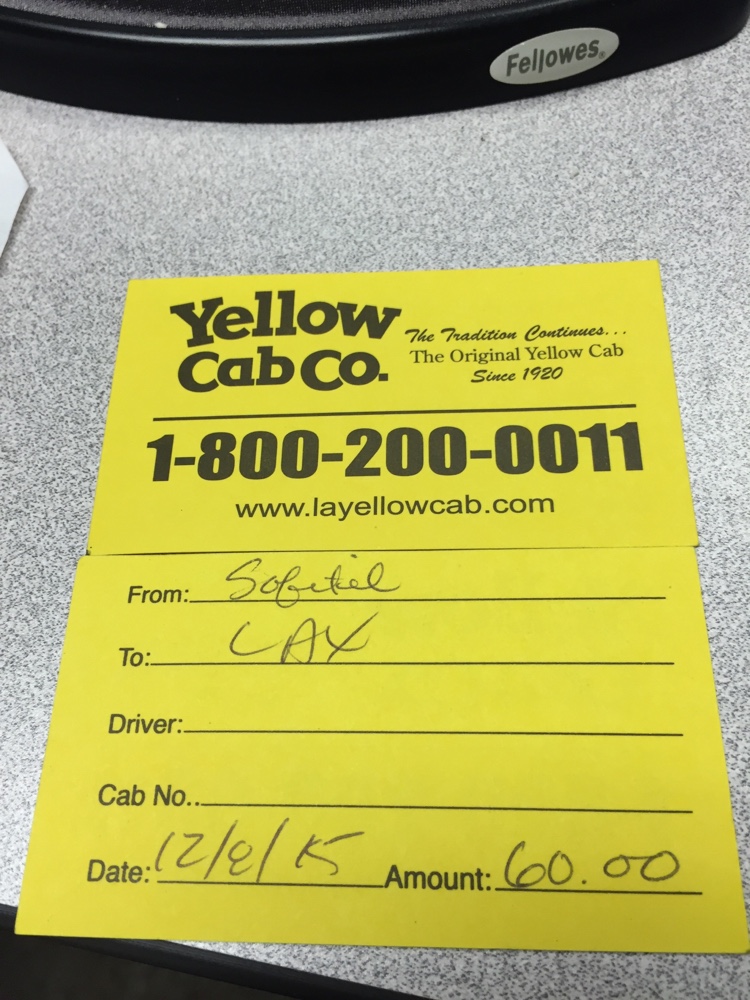 Fellowes®
Yellow
Cab Co.
The Tradition Continues...
The Original Yellow Cab
Since 1920
1-800-200-0011
www.layellowcab.com
From: Sofitel
To: LAX
Driver:
Cab No..
Date: 12/8/15 Amount: 60.00